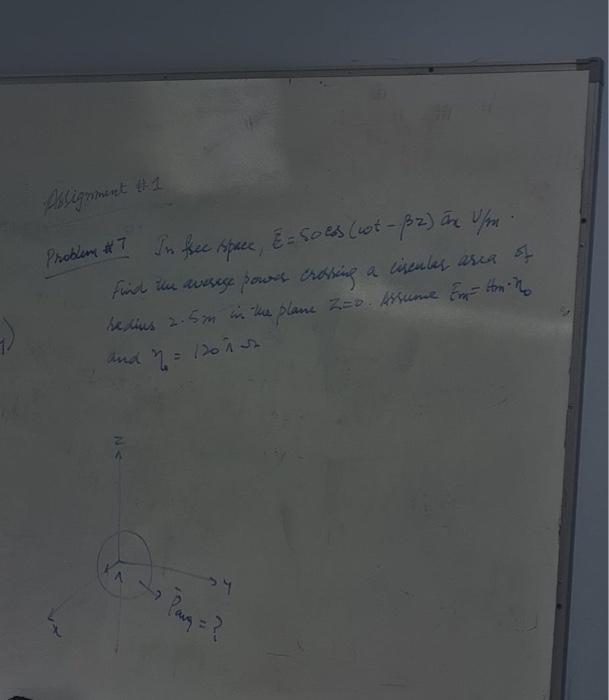 Assignment #1
Problem #7 In free space, Ē = 50 cos (ωt - βz) āx V/m.
Find the average power crossing a circular area of
radius 2.5m in the plane Z=0. Assume Em = Hm·η₀
and η₀ = 120π Ω
z
y
P̄avg = ?
x